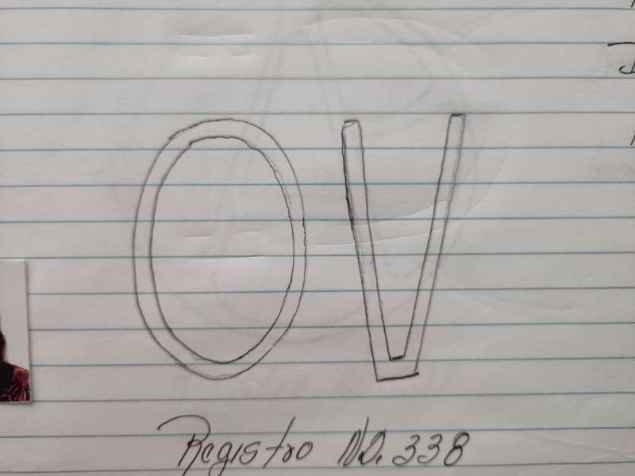 OV
Registro No. 338